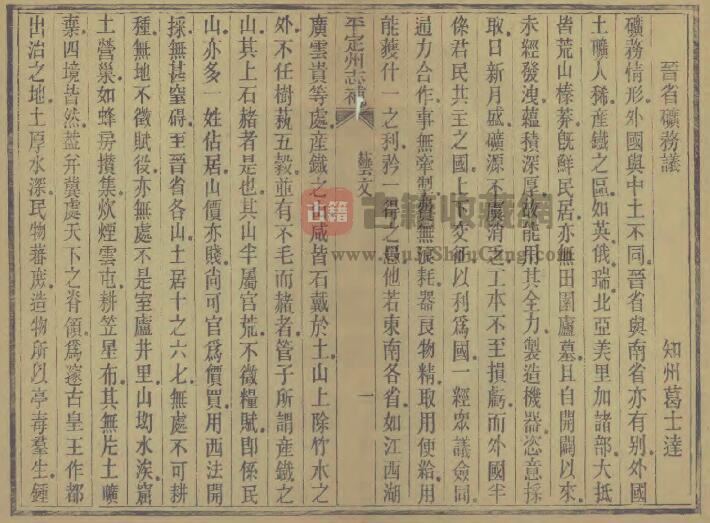 晉省礦務議
知州葛士達
礦務情形外國與中土不同晉省與南省亦有別外國
土曠人稀產鐵之區如英俄瑞北亞美里加諸部大抵
皆荒山榛莽旣鮮民居亦無田園廬墓且自開闢以來
未經發洩蘊積深厚故能用其全力製造機器恣意採
取日新月盛礦源不虞消乏工本不至損虧而外國半
係君民共主之國上下交征以利爲國一經眾議僉同
通力合作事無牽掣費無浪耗器良物精取用便給用
能獲什一之利矜一得之愚他若東南各省如江西湖
平定州志補
藝文
一
廣雲貴等處產鐵之山咸皆石戴於土山上除竹木之
外不任樹蓺五穀並有不毛而赭者管子所謂產鐵之
山其上石赭者是也其山半屬官荒不徵糧賦卽係民
山亦多一姓佔居山價亦賤尙可官爲價買用西法開
採無甚窒碍至晉省各山土居十之六七無處不可耕
種無地不徵賦役亦無處不是室廬井里山坳水涘窟
土營巢如蜂房攅集炊煙雲屯耕笠星布其無片土曠
棄四境皆然蓋幷冀處天下之脊領爲邃古皇王作都
出治之地土厚水深民物蕃庶造物所以亭毒羣生鍾
古籍
古籍收藏網
www.GuJiShuCang.com